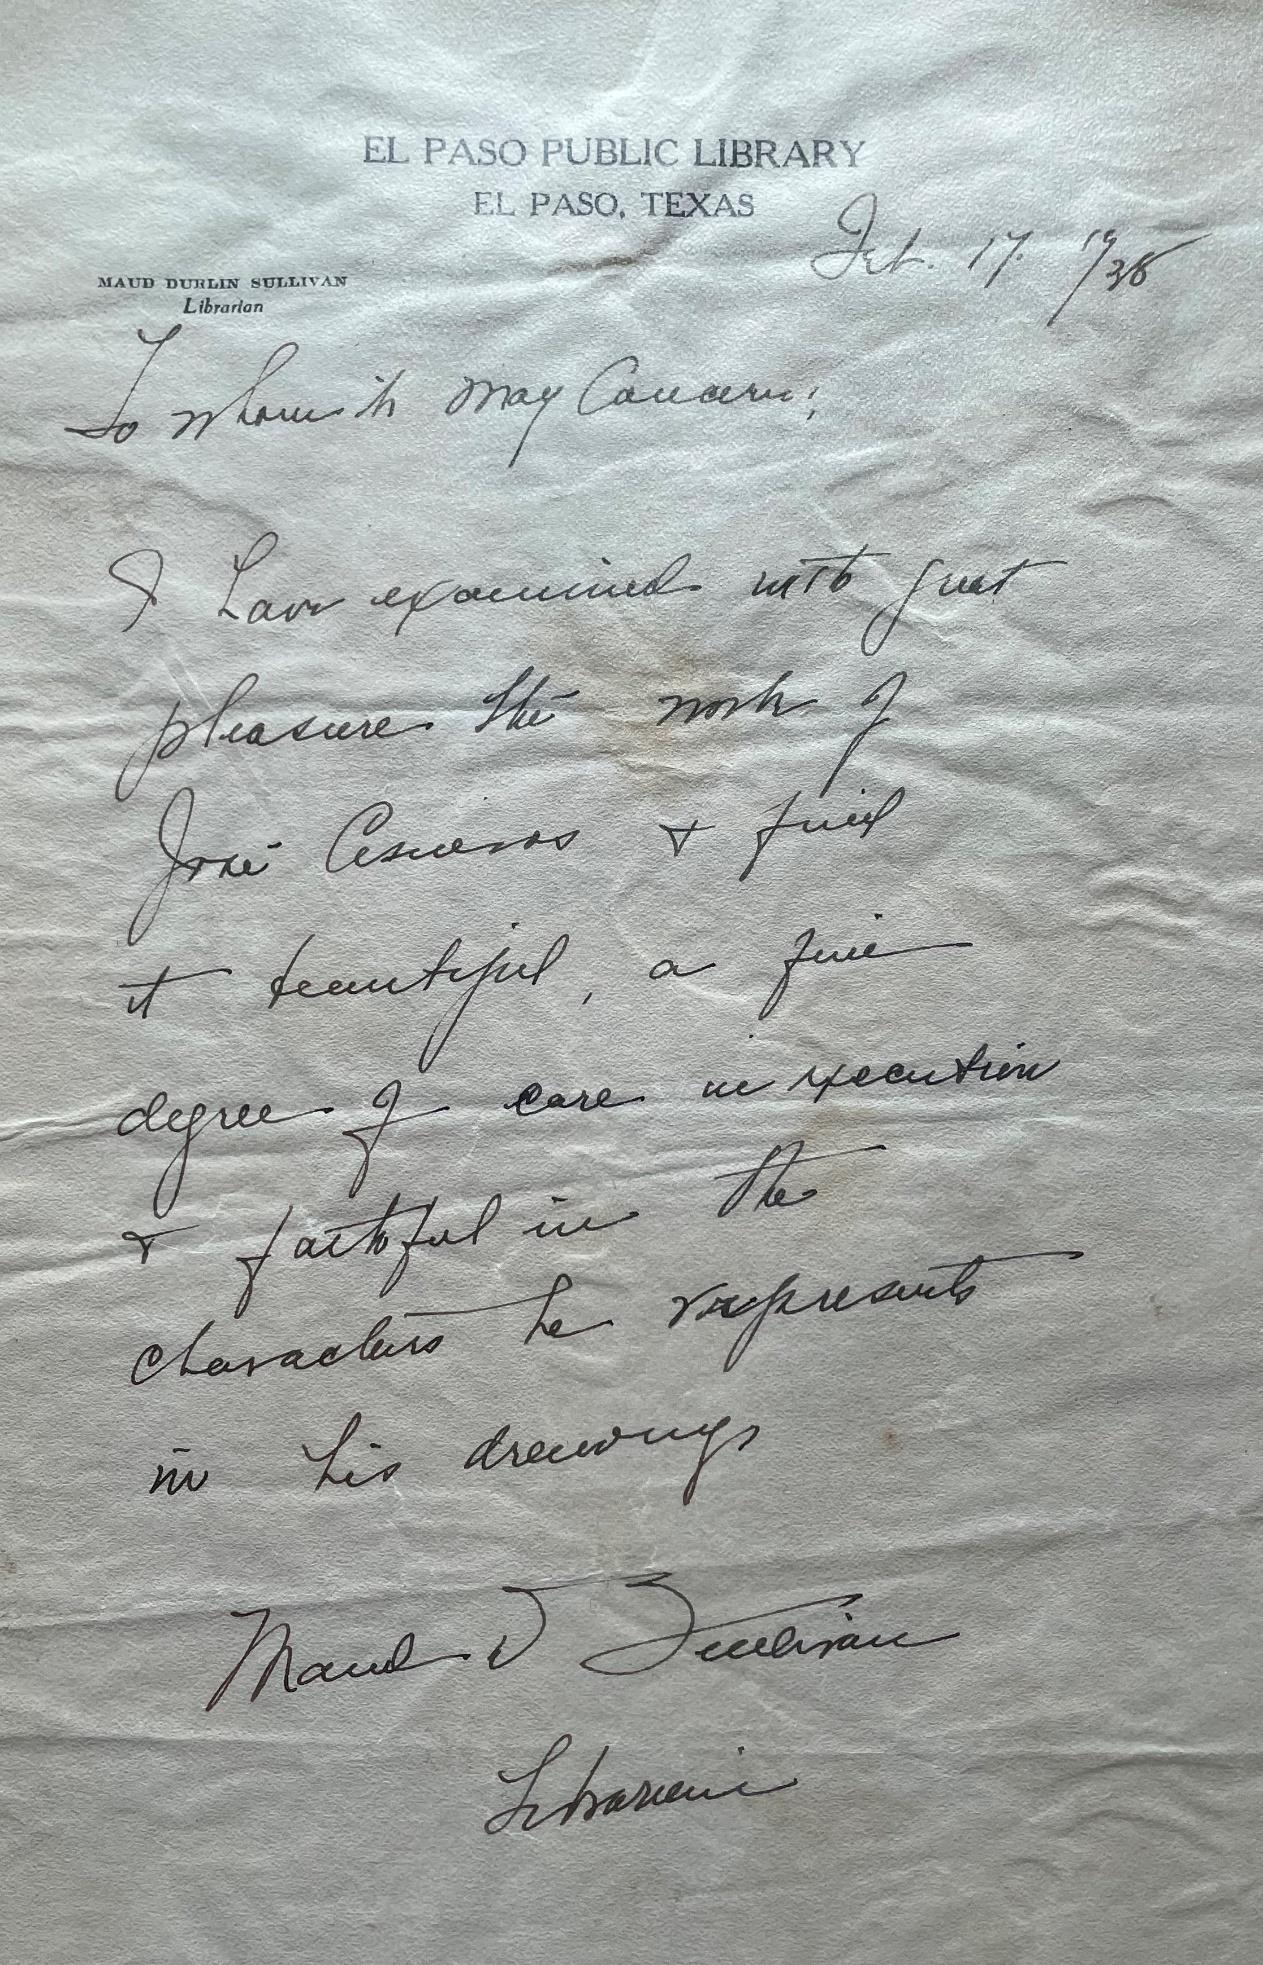 EL PASO PUBLIC LIBRARY
EL PASO, TEXAS
Feb. 17. 19/38
MAUD DURLIN SULLIVAN
Librarian
To whom it May Concern:
I have examined with great
pleasure the work of
José Cisneros & find
it beautiful, a fine
degree of care in execution
& faithful in the
characters he represents
in his drawings
Maud D Sullivan
Librarian